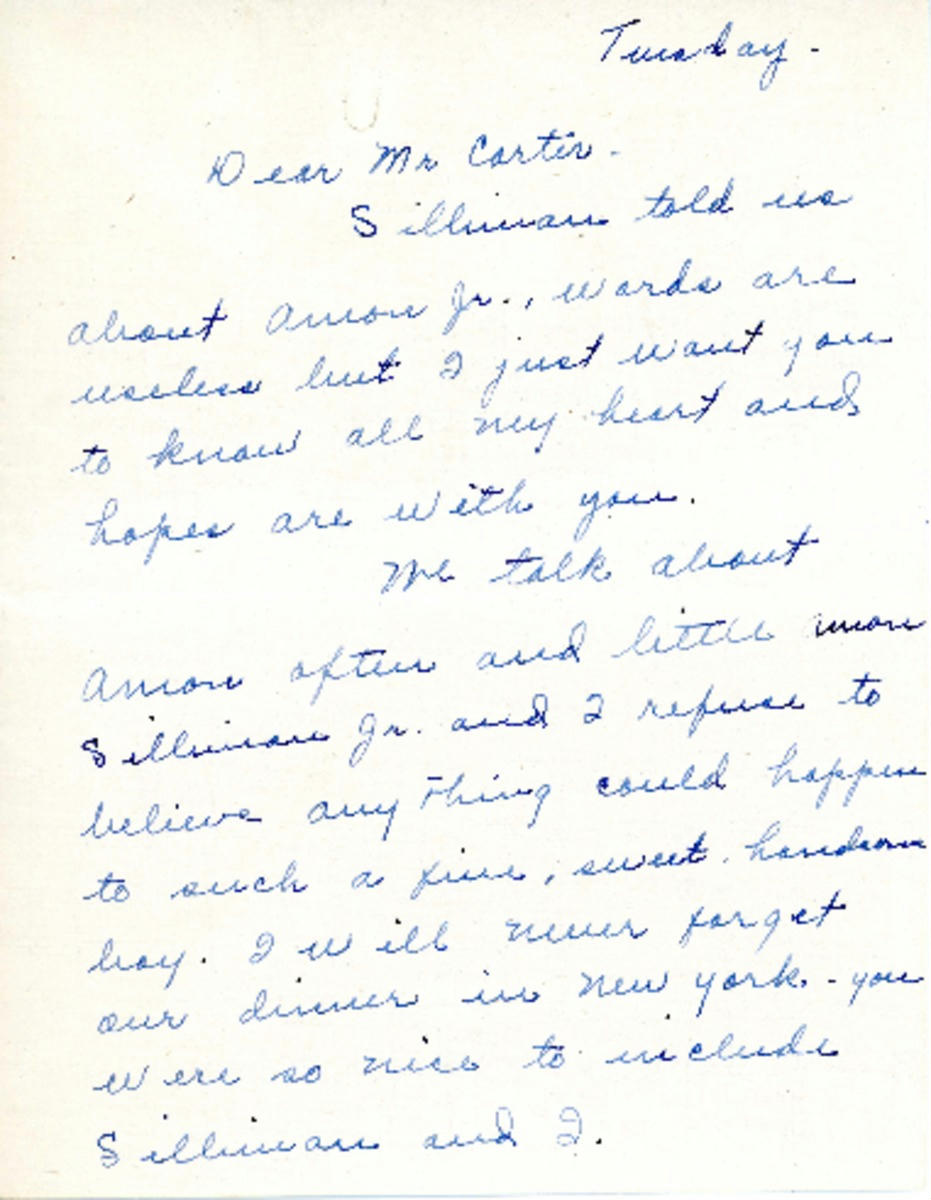 Tuesday -
Dear Mr Carter -
Silliman told us
about Amon Jr., words are
useless but I just want you
to know all my heart and
hopes are with you.
We talk about
Amon often and little Amon
Silliman Jr. and I refuse to
believe anything could happen
to such a fine, sweet, handsome
boy. I will never forget
our dinner in New York - you
were so nice to include
Silliman and I.